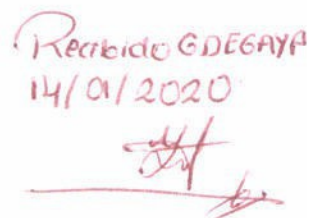 Recibido GDEGAYA
14/01/2020